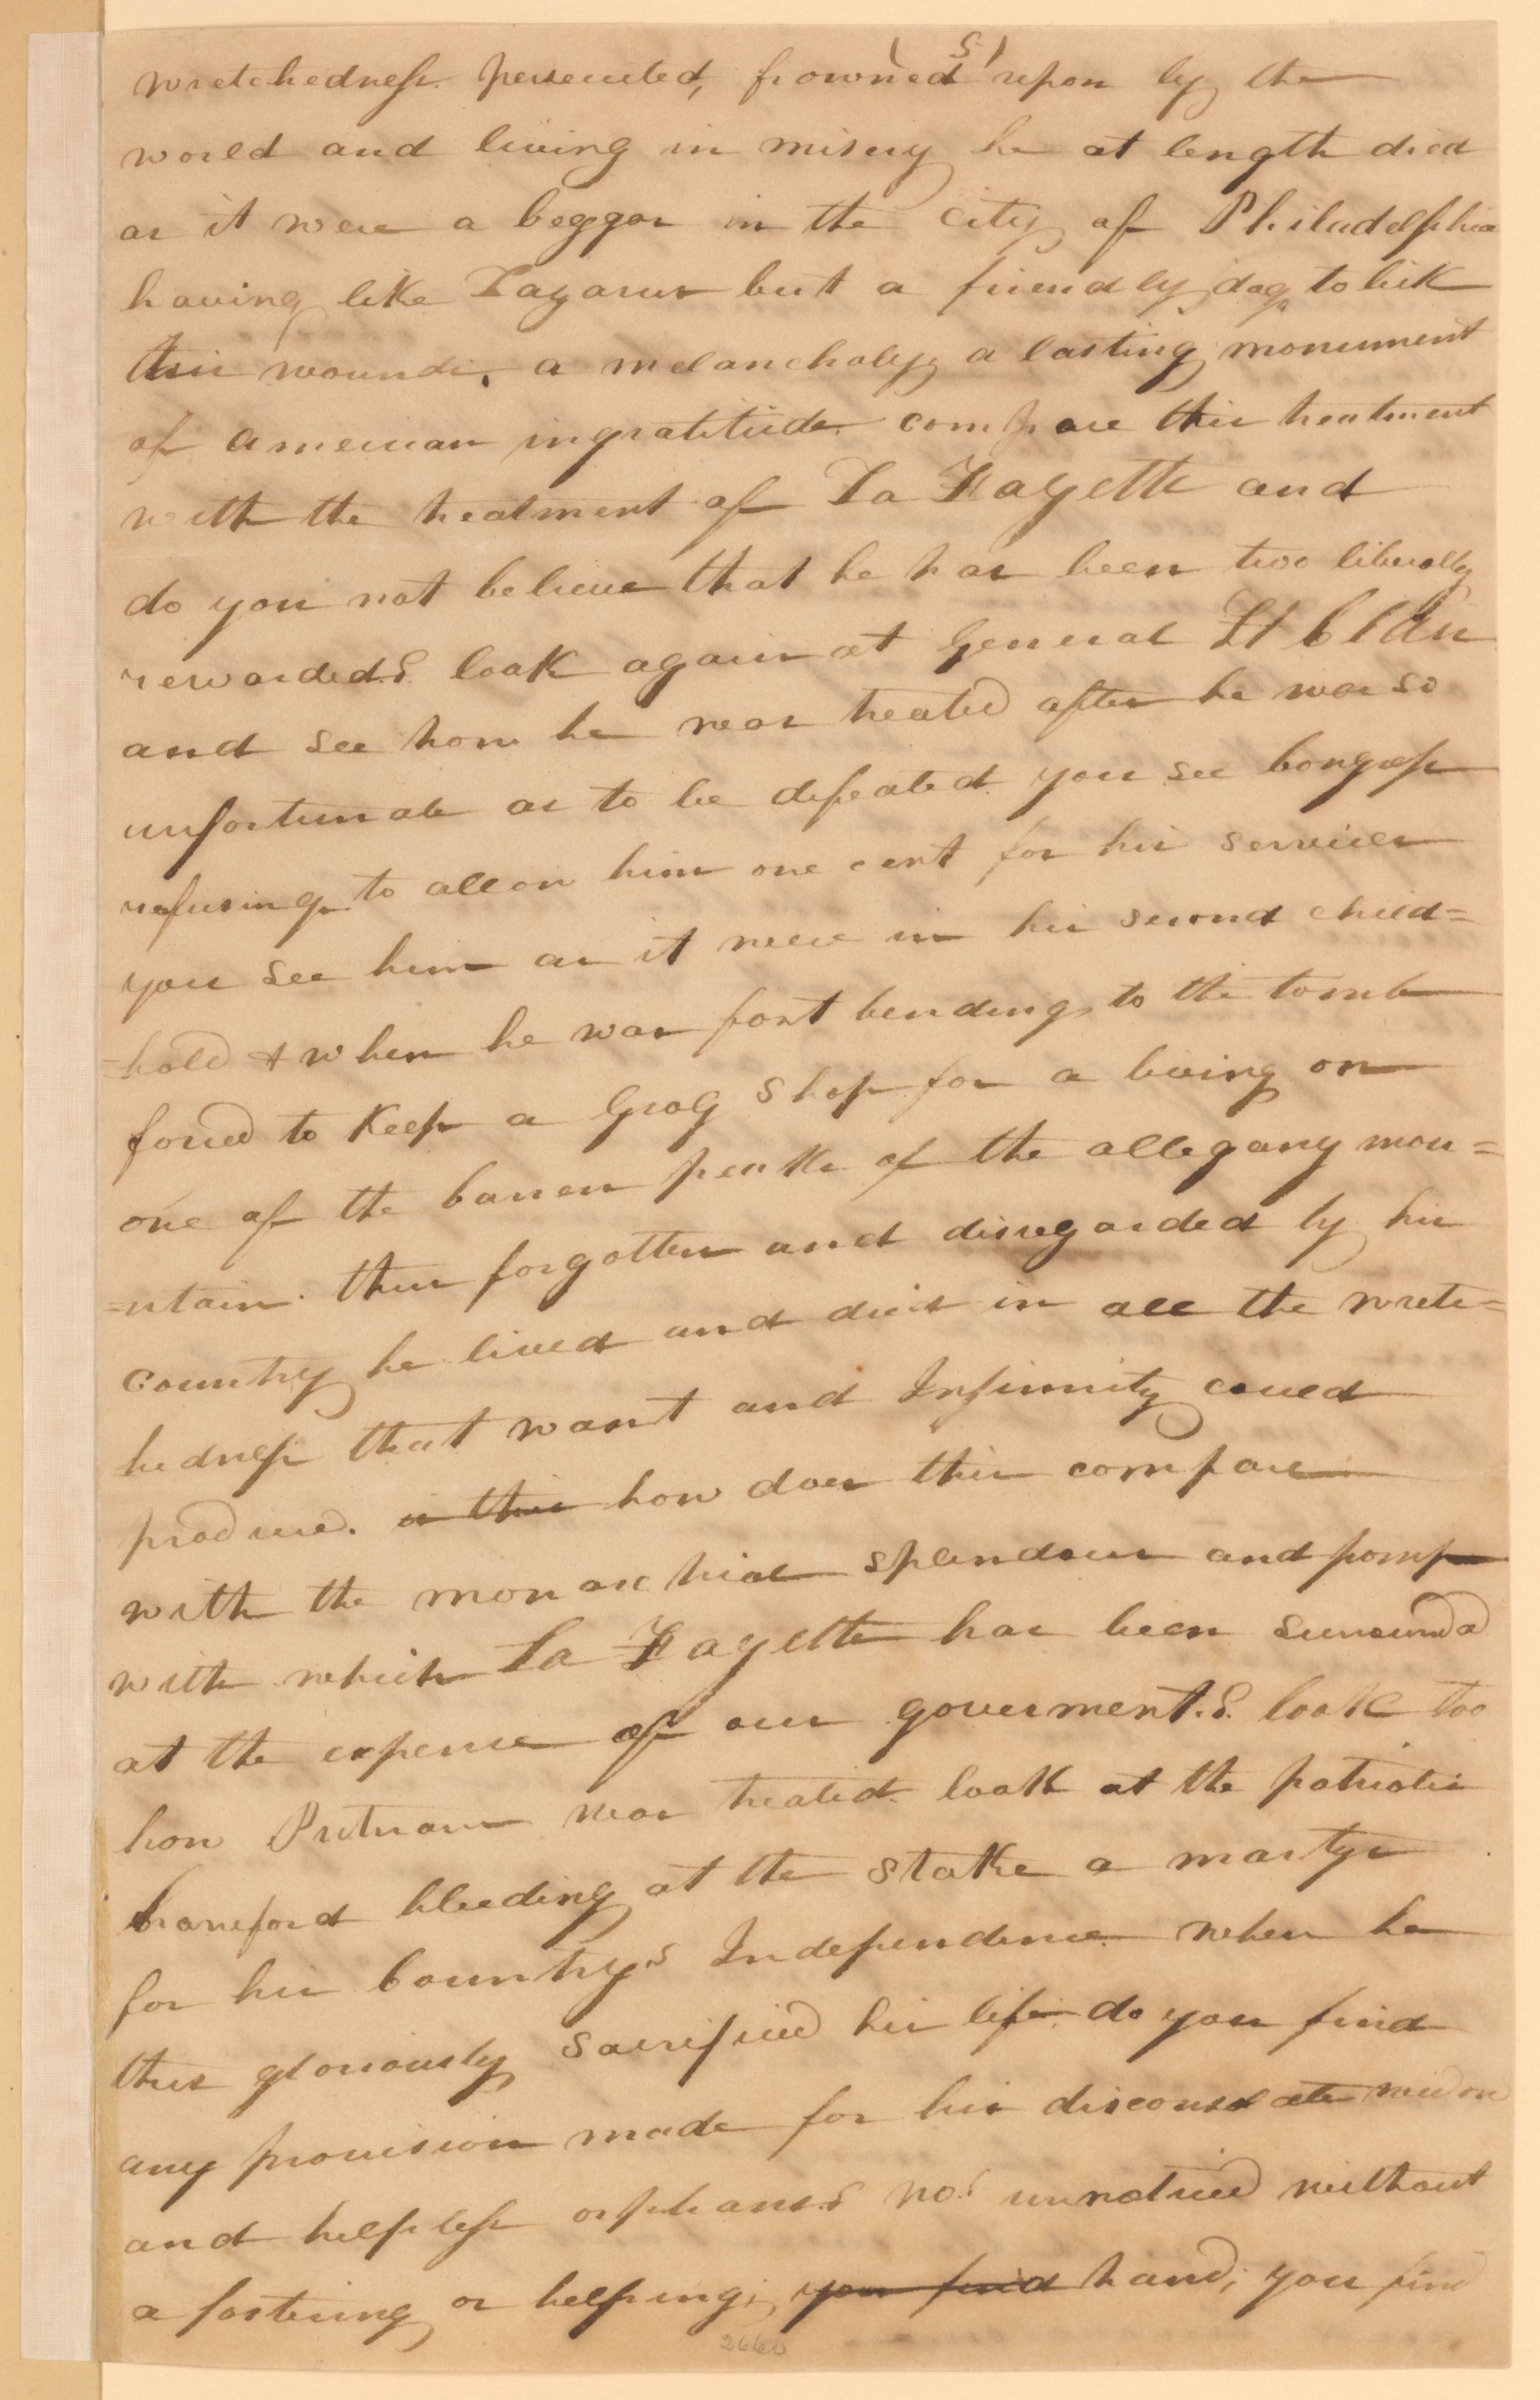 (5)
wretchedness. persecuted, frowned upon by the
world and living in misery he at length died
as it were a beggar in the city of Philadelphia
having like Lazarus but a friendly dog to lick
his wounds, a melancholy, a lasting monument
of american ingratitude. compare this treatment
with the treatment of La Fayette and
do you not believe that he has been two liberally
rewarded.? look again at General St Clair
and see how he was treated after he was so
unfortunate as to be defeated. you see Congress
refusing to allow him one cent for his services
you see him as it were in his second child=
=hold & when he was fast bending to the tomb
forced to keep a Grog Shop for a living on
one of the barren peaks of the allegany mou=
=ntain. thus forgotten and disregarded by his
country he lived and died in all the wretc=
hedness that want and Infirmity could
produce. is this how does this compare
with the monarchial splendour and pomp
with which La Fayette has been surround
at the expense of our goverment.? look too
how Putnam was treated. look at the patriotic
Craneford bleeding at the stake a martyr
for his Country's Independence. when he
thus gloriously sacrificed his life do you find
any provision made for his disconsolate widow
and helpless orphans.? no! unnoticed without
a fostering or helping; you find hand; you find
2660